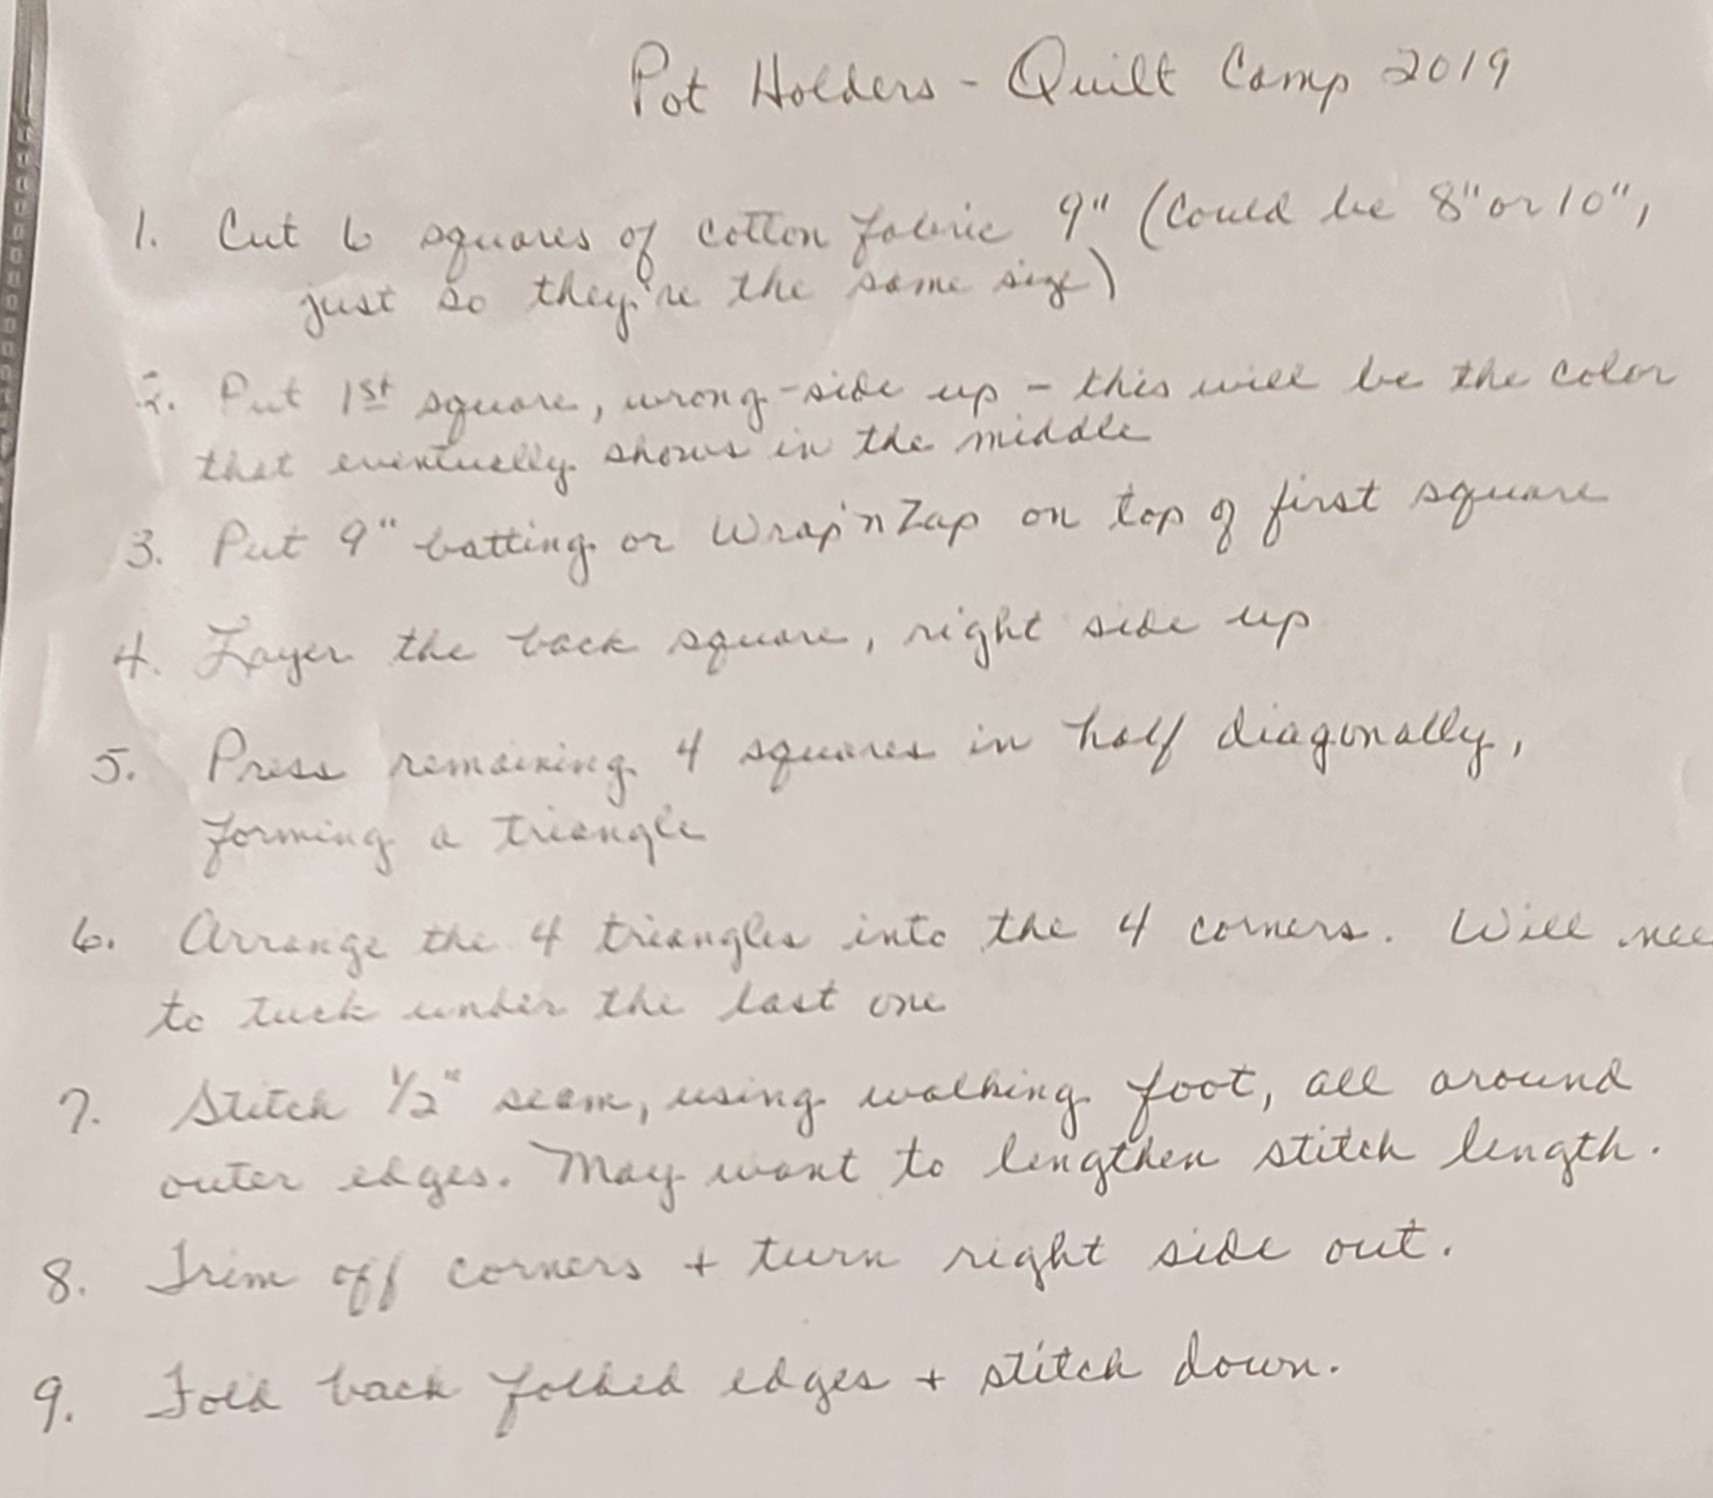 Pot Holders - Quilt Camp 2019
1. Cut 6 squares of cotton fabric 9" (Could be 8" or 10",
just so they're the same size)
2. Put 1st square, wrong-side up - this will be the color
that eventually shows in the middle
3. Put 9" batting or Wrap'n Zap on top of first square
4. Layer the back square, right side up
5. Press remaining 4 squares in half diagonally,
forming a triangle
6. Arrange the 4 triangles into the 4 corners. Will nee
to tuck under the last one
7. Stitch 1/2" seam, using walking foot, all around
outer edges. May want to lengthen stitch length.
8. Trim off corners + turn right side out.
9. Fold back folded edges + stitch down.